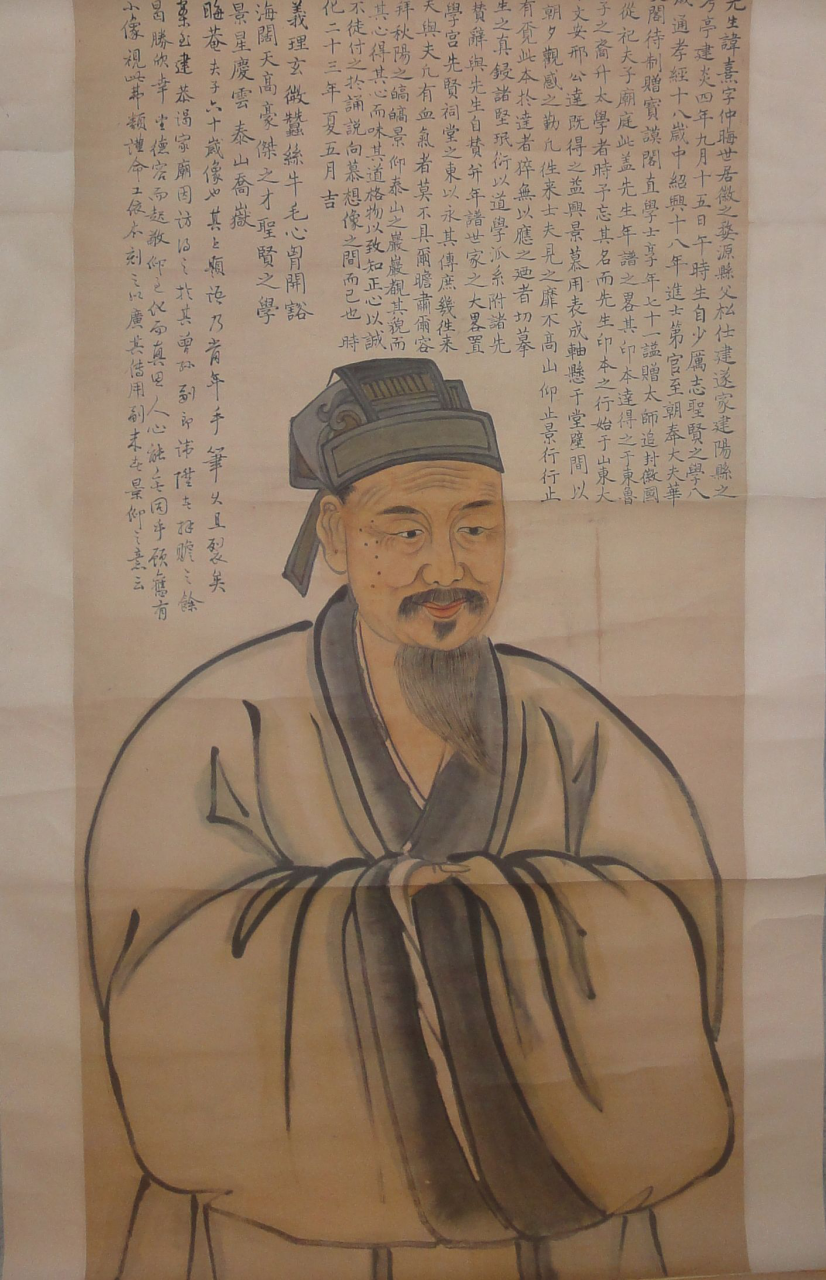 先生諱熹字仲晦世居徽之婺源縣父松仕建遂家建陽縣之
考亭建炎四年九月十五日午時生自少厲志聖賢之學八
歲通孝經十八歲中紹興十八年進士第官至朝奉大夫華
文閣待制贈寶謨閣直學士享年七十一諡贈太師追封徽國
從祀天子廟庭此盖先生年譜之畧其印本達得之于東魯
子之裔升太學者時予忘其名而先生印本之行始于山東大
文安邢公達既得之益興景慕用表成軸懸于堂壁間以
朝夕觀感之勤凡徃来士夫見之靡不高山仰止景行行止
有覔此本於達者猝無以應之廼者切摹
生之真鋟諸堅珉衍以道學派系附諸先
賛辭與先生自賛并年譜世家之大畧置
學宮先賢祠堂之東以永其傳庶幾徃来
夫與夫凡有血氣者莫不具爾瞻肅爾容
祥秋陽之皜皜景仰泰山之巖巖覩其貌而
其心得其心而味其道格物以致知正心以誠
不徒付之於誦說向慕想像之間而已也 時
化二十三年夏五月吉
義理玄微蠶絲牛毛心胷開豁
海闊天高豪傑之才聖賢之學
景星慶雲泰山喬嶽
晦菴夫子六十歲像也其上題語乃當年手筆久且裂矣
建恭謁家廟因訪得之於其曾孫
勝欣幸坐德容而起敬仰
小像視此弗類謹命工依本刻之以廣其